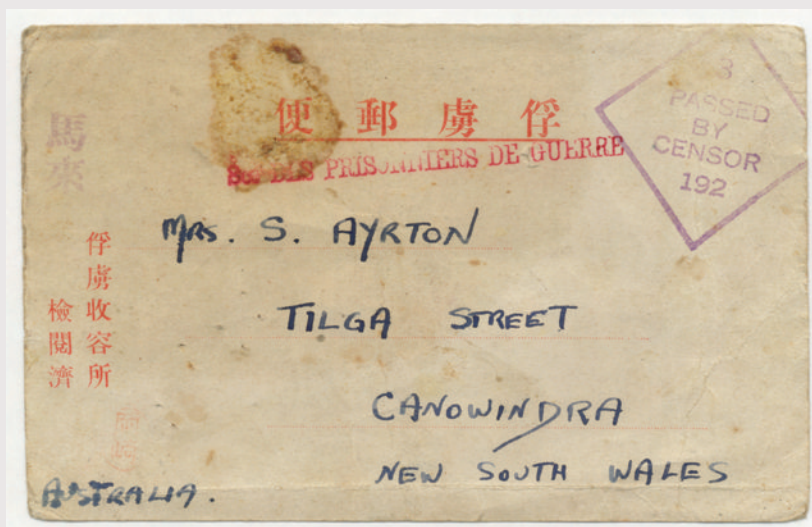 便郵虜俘
SERVICE DES PRISONNIERS DE GUERRE
3
PASSED
BY
CENSOR
192
馬來
俘虜收容所
檢閱濟
MRS. S. AYRTON
TILGA STREET
CANOWINDRA
NEW SOUTH WALES
AUSTRALIA.